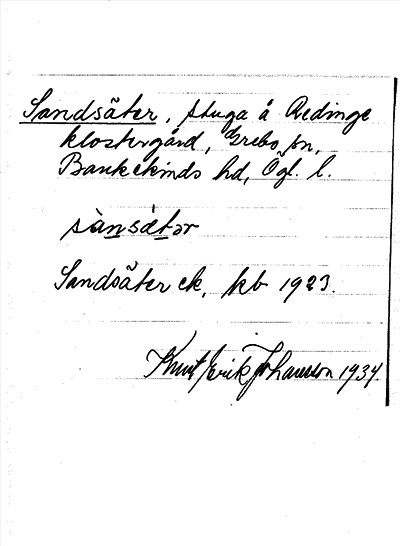 Sandsäter, stuga å Redinge
klostergård, Grebo sn,
Bankekinds hd, Ögl. l.
sànsǽtər
Sandsäter ek, kb 1923.
Knut Erik Johansson 1934.